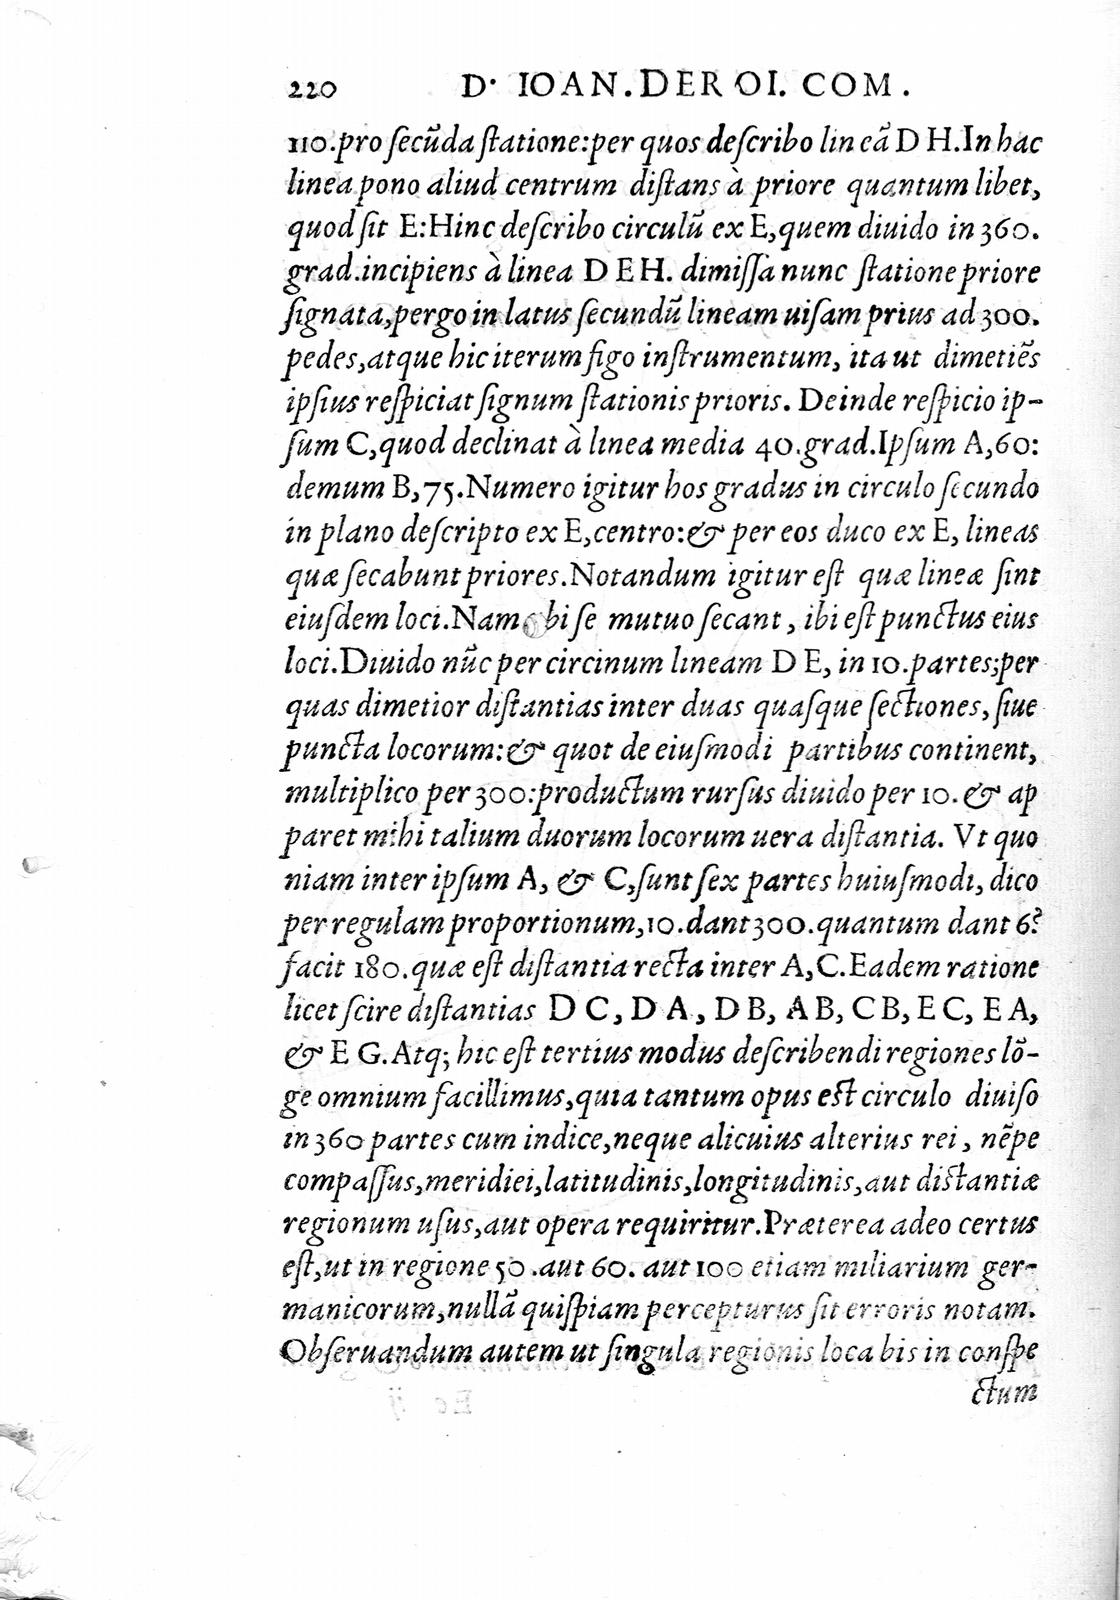 220 D. IOAN. DE ROI. COM.
110.pro secũda statione:per quos describo lineã D H.In hac
linea pono aliud centrum distans à priore quantum libet,
quod sit E:Hinc describo circulũ ex E,quem diuido in 360.
grad.incipiens à linea D E H. dimissa nunc statione priore
signata,pergo in latus secundũ lineam uisam prius ad 300.
pedes,atque hic iterum figo instrumentum, ita ut dimetiẽs
ipsius respiciat signum stationis prioris. Deinde respicio ip-
sum C,quod declinat à linea media 40.grad.Ipsum A,60:
demum B,75.Numero igitur hos gradus in circulo secundo
in plano descripto ex E,centro:& per eos duco ex E, lineas
quæ secabunt priores.Notandum igitur est quæ lineæ sint
eiusdem loci.Nam bi se mutuo secant, ibi est punctus eius
loci.Diuido nũc per circinum lineam D E, in 10.partes;per
quas dimetior distantias inter duas quasque sectiones, siue
puncta locorum:& quot de eiusmodi partibus continent,
multiplico per 300:productum rursus diuido per 10. & ap
paret mihi talium duorum locorum uera distantia. Vt quo
niam inter ipsum A, & C,sunt sex partes huiusmodi, dico
per regulam proportionum,10.dant 300.quantum dant 6?
facit 180.quæ est distantia recta inter A,C.Eadem ratione
licet scire distantias D C, D A, D B, A B, C B, E C, E A,
& E G.Atq; hic est tertius modus describendi regiones lõ-
ge omnium facillimus,quia tantum opus est circulo diuiso
in 360 partes cum indice,neque alicuius alterius rei, nẽpe
compassus,meridiei,latitudinis,longitudinis,aut distantiæ
regionum usus,aut opera requiritur.Præterea adeo certus
est,ut in regione 50.aut 60. aut 100 etiam miliarium ger-
manicorum,nullã quispiam percepturus sit erroris notam.
Obseruandum autem ut singula regionis loca bis in conspe
ctum